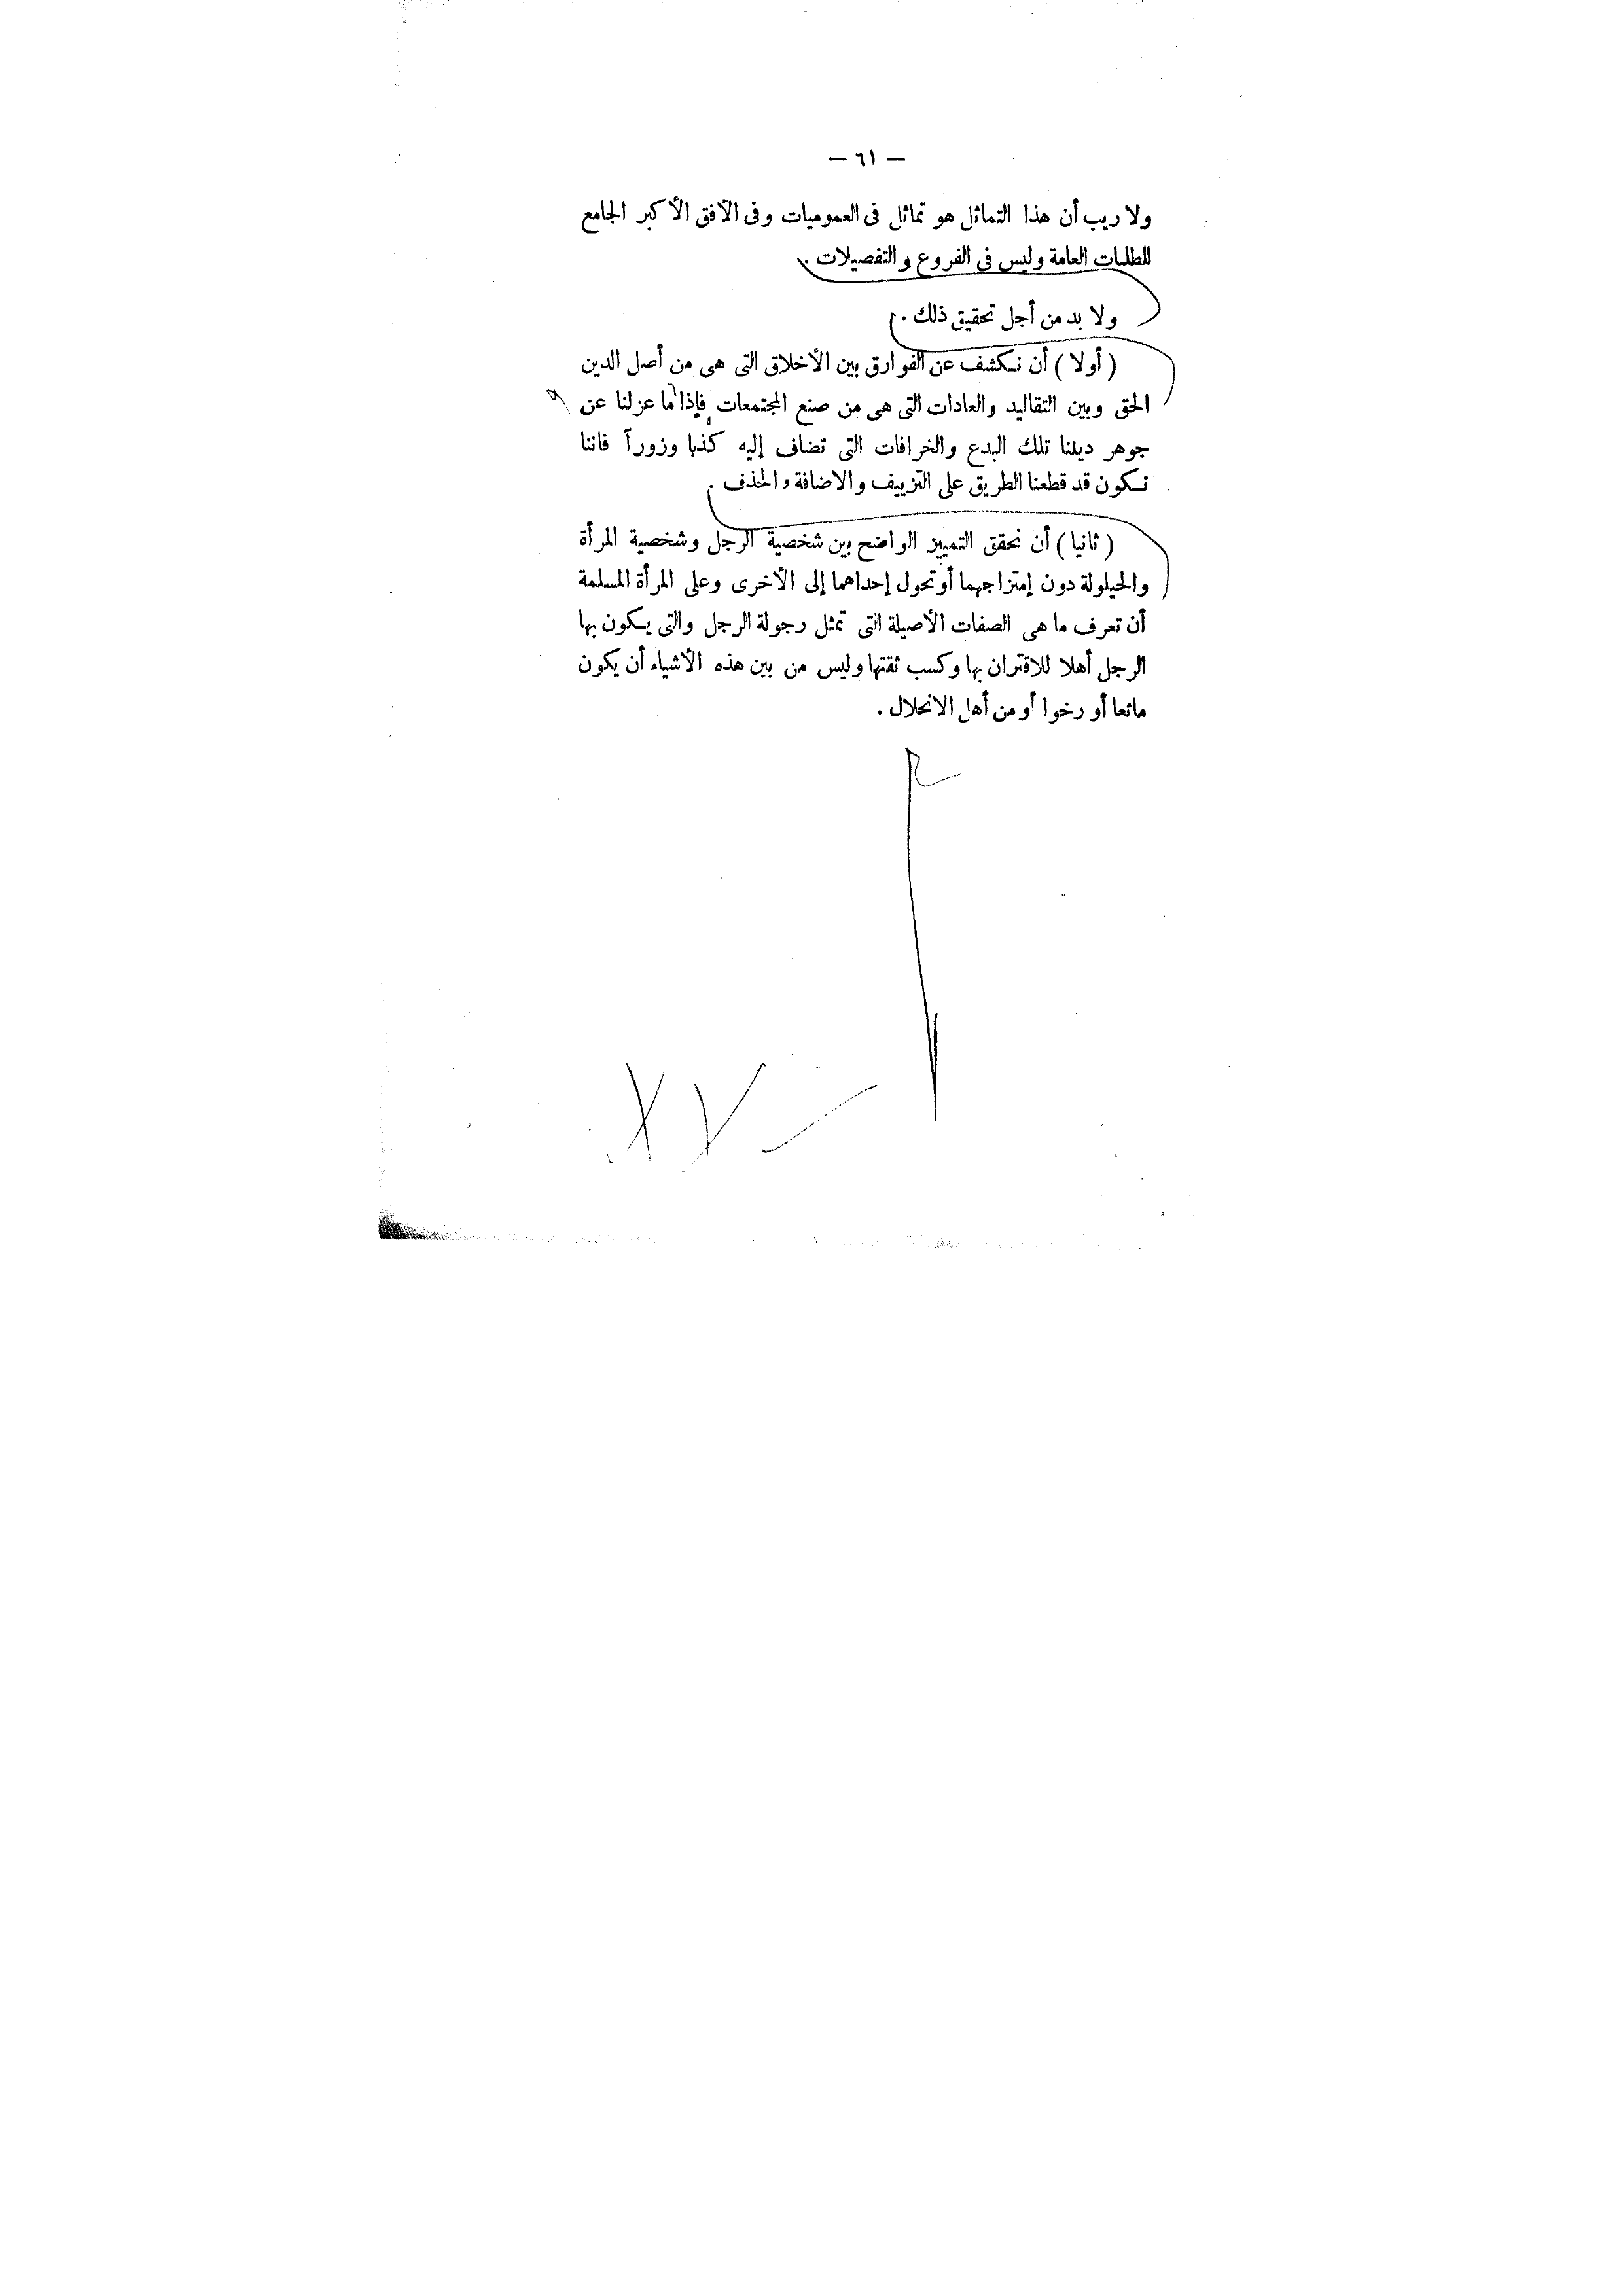 — ٦١ —
ولا ريب أن هذا التماثل هو تماثل فى العموميات وفى الآفق الأكبر الجامع
للطلبات العامة وليس فى الفروع والتفصيلات .
ولا بد من أجل تحقيق ذلك .
( أولا ) أن نكشف عن الفوارق بين الأخلاق التى هى من أصل الدين
الحق وبين التقاليد والعادات التى هى من صنع المجتمعات فإذا ما عزلنا عن
جوهر ديننا تلك البدع والخرافات التى تضاف إليه كذبا وزوراً فاننا
نكون قد قطعنا الطريق على التزييف والاضافة والحذف .
( ثانيا ) أن نحقق التمييز الواضح بين شخصية الرجل وشخصية المرأة
والحيلولة دون إمتزاجهما أو تحول إحداهما إلى الأخرى وعلى المرأة المسلمة
أن تعرف ما هى الصفات الأصيلة التى تمثل رجولة الرجل والتى يكون بها
الرجل أهلا للاقتران بها وكسب ثقتها وليس من بين هذه الأشياء أن يكون
مائعا أو رخوا أو من أهل الانحلال .